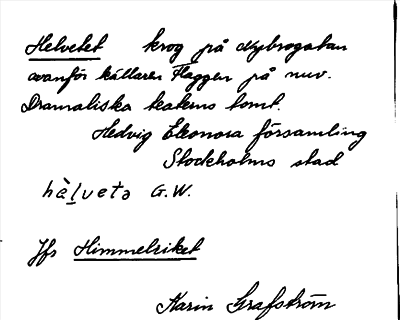 Helvetet krog på Nybrogatan
ovanför källaren Flaggen på nuv.
Dramatiska teaterns tomt.
Hedvig Eleonora församling
Stockholms stad
hèlvetə G.W.
Jfr Himmelriket
Karin Grafström